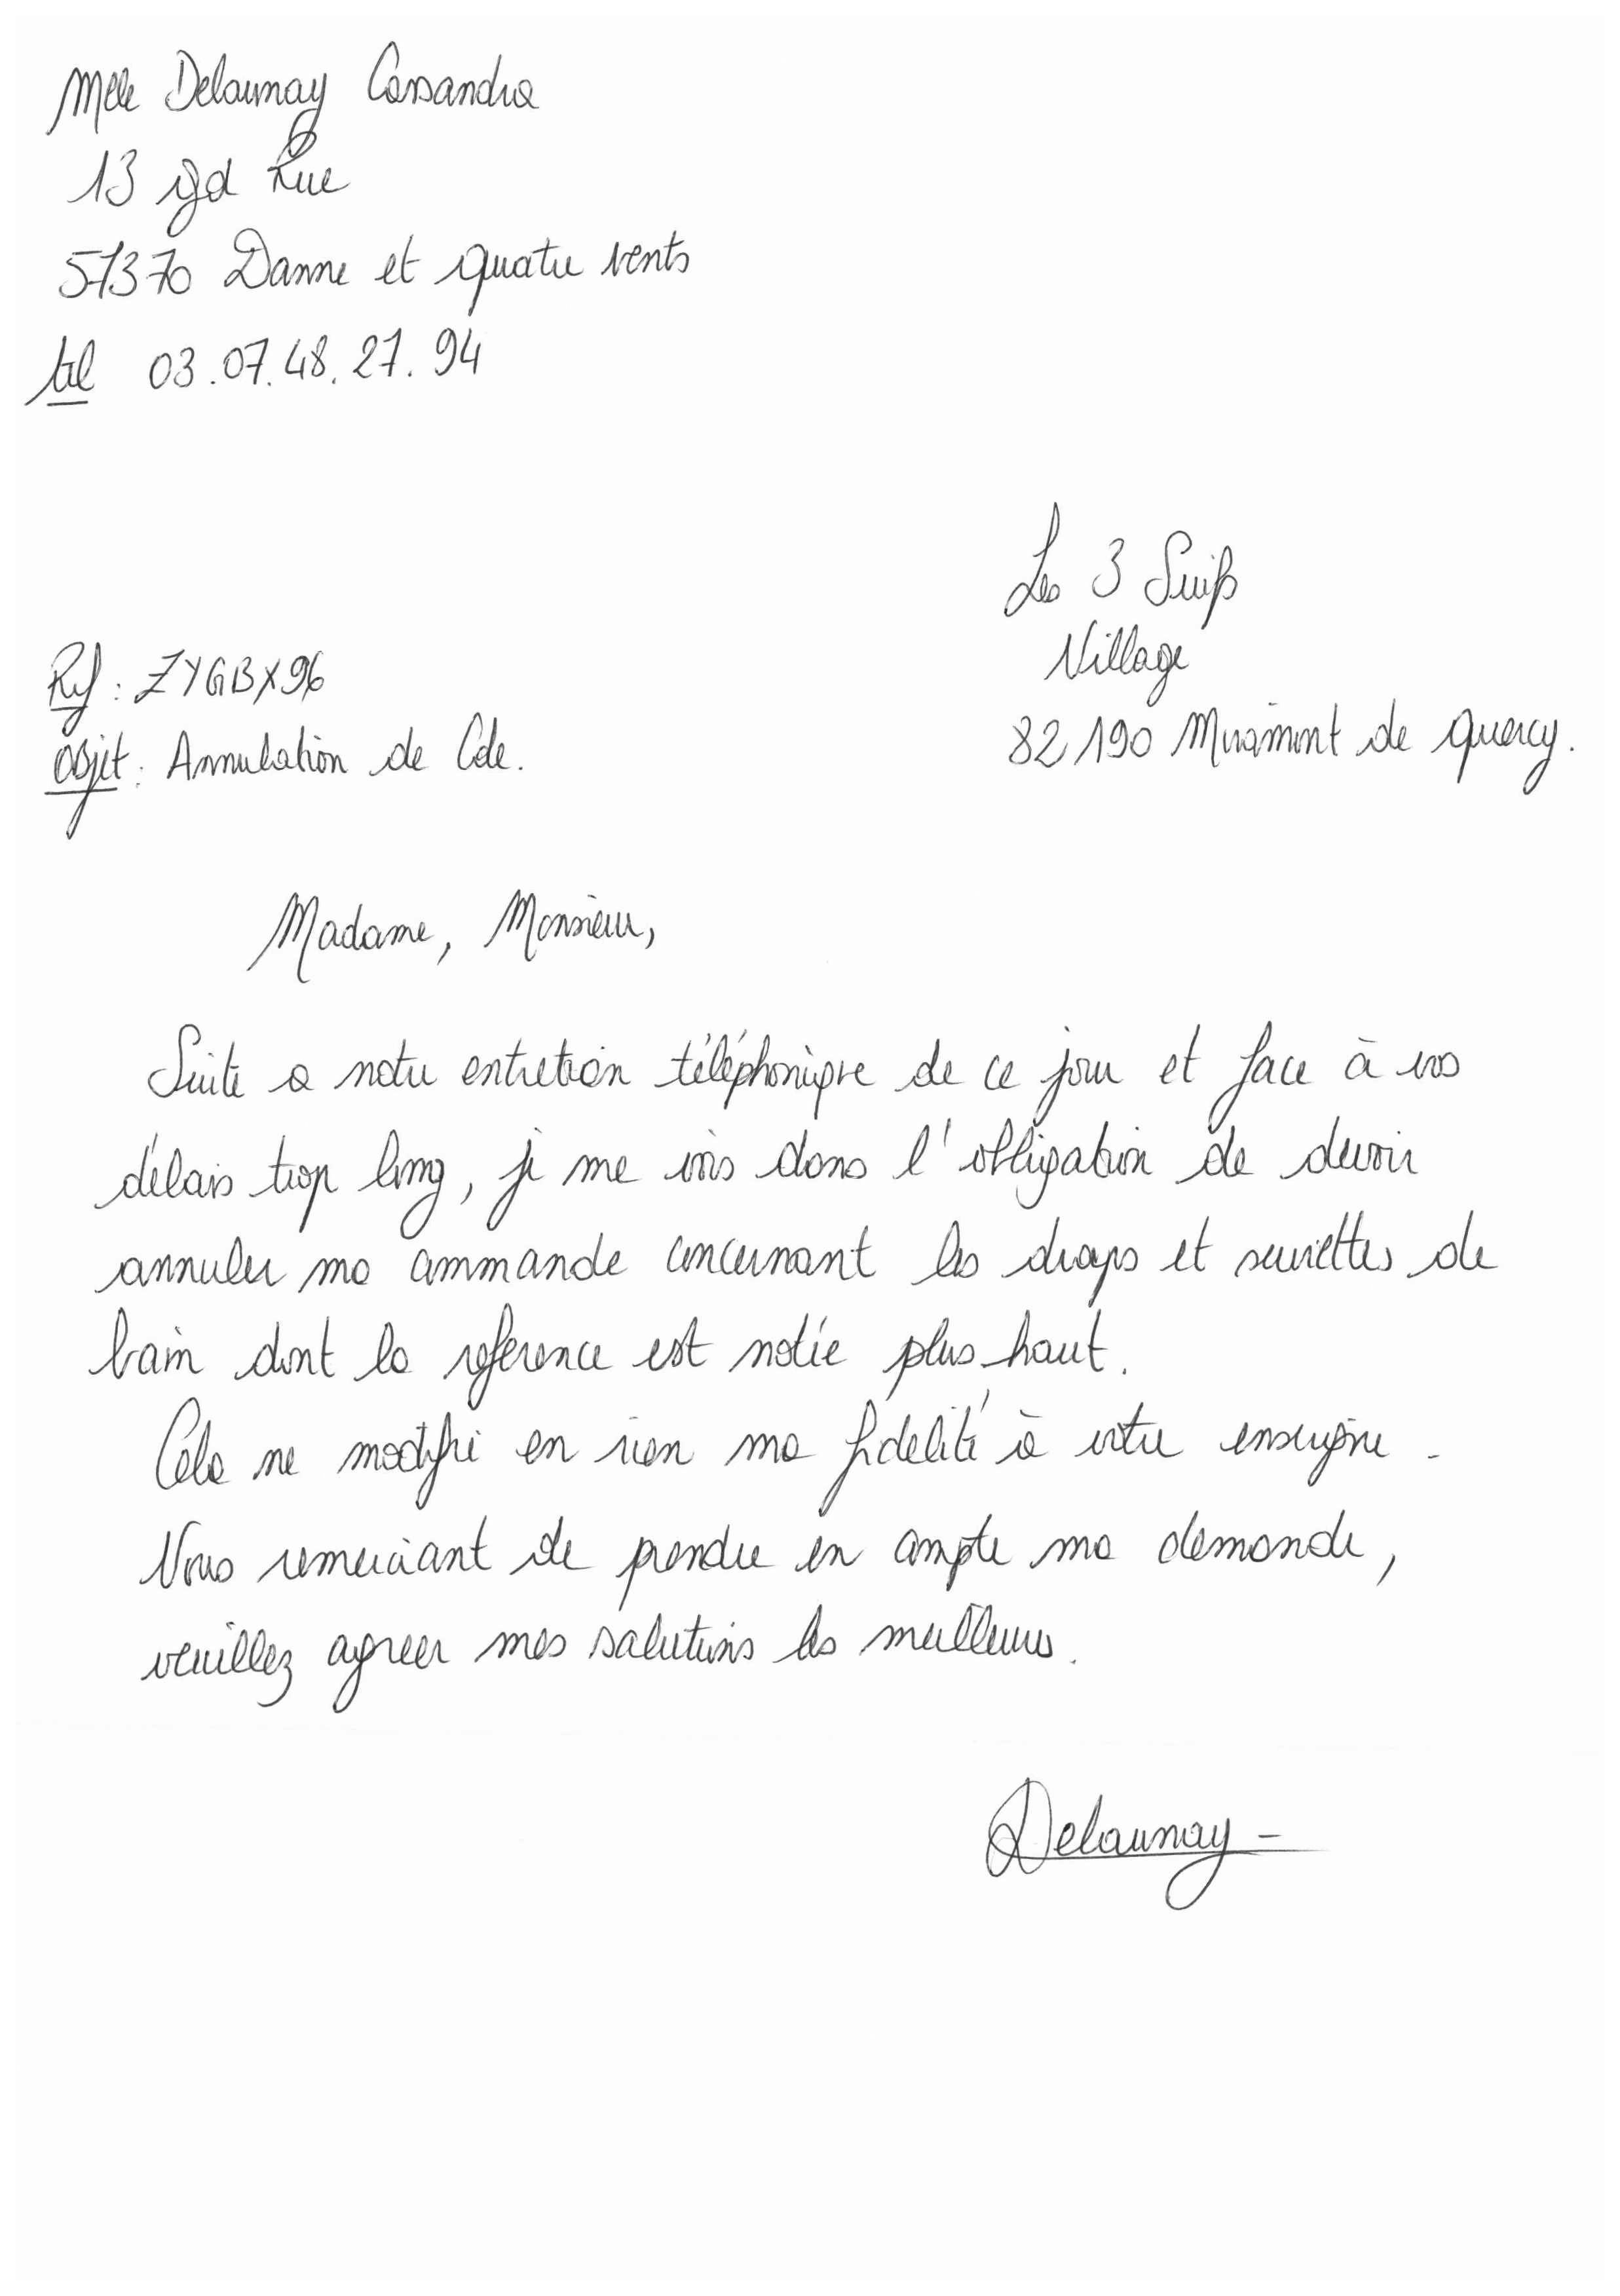 Melle Delaunay Cassandra
13 gd Rue
57370 Danne et quatre vents
tel 03.07.48.27.94
Les 3 Suiss
Village
82190 Miramont de quercy.
Ref : ZYGBX96
Objet : Annulation de Cde.
Madame, Monsieur,
Suite a notre entretien téléphonique de ce jour et face à vos
délais trop long, je me vois dans l'obligation de devoir
annuler ma commande concernant les draps et serviettes de
bain dont la reference est notée plus haut.
Cela ne modifie en rien ma fidelité à votre enseigne.
Vous remerciant de prendre en compte ma demande,
veuillez agreer mes salutions les meilleures.
Delaunay -